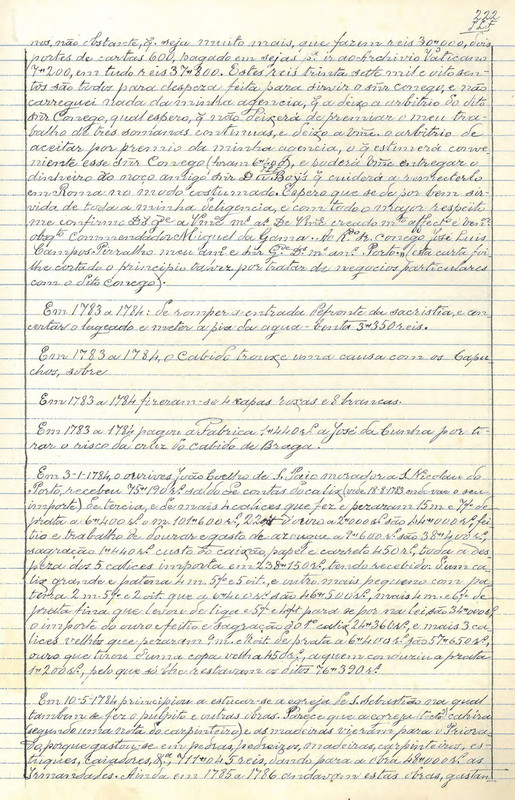 222
nos, não obstante, q. seja muito mais, que fazem reis 30#000, dois
portes de cartas 600, pagado em sejas pª ir ao Archivio Vaticano
7#200, em tudo reis 37#800. Estes reis trinta sete mil e oito sen-
tos são todos para despeza feita para sirvir o snr conego, e não
carreguei nada da minha agencia, q a deixo a arbitrio do dito
snr Conego, qual espero, q não deixerá de premiar o meu tra-
balho de tres somanas continuas, e deixo a Vme. o arbitrio de
aceitar por premio da minha agencia, o q estimerá conve-
niente esse snr Conego (foram 6#400), e puderá Vme entregar o
dinheiro ao noço amigo snr Dm Borjs q cuiderá a remeterlo
em Roma no modo costumado. Espero que se dê por bem sir-
vida de toda a minha deligencia, e com todo o major respeito
me confirmo Ds gde a Vmce ms as De Vmce creado mto affecto e
obrgdo Commendador Miguel da Gama. Ao Rdo Sr. Conego José Luis
Campos. Pirralho meu am. e snr Gde Ds ms ans Porto,, (esta carta foi
lhe cortado o principio talvez por tratar de negocios particulares
com o dito Conego).
Em 1783 a 1784: de romper a entrada defronte da sacristia, e con-
certar o lageado e meter a pia da agua-benta 3#350 reis.
Em 1783 a 1784, o Cabido trouxe uma causa com os Capu-
chos, sobre
Em 1783 a 1784 fizeram-se 4 capas roxas e 8 brancas.
Em 1783 a 1784 pagou a Fabrica 1#440 rs. a José da Cunha por ti-
rar o risco da cruz do cabido de Braga.
Em 3-1-1784, o ourives João Coelho de S. Paio morador a S. Nicolau do
Porto, recebeu 75#190 rs. saldo de contas do calix (vide 18-8-1783 onde vae o seu
importe) de tercia, e de mais 4 calices que fez e pezaram 15 m. e 7/8 de
prata a 6#400 o m. 101#600 rs., 22 oit d'ouro a 2#000 rs. são 44#000 rs., fei-
tio e trabalho de dourar e gasto de azougue a 9#600 rs. são 38#400 rs.,
sagração 1#440 rs. custo do caixão, papel e carreto 450 rs., toda a des-
peza dos 5 calices importa em 238#150 rs., tendo recebido d'um ca-
lix grande e patena 4 m. 5/8 e 5 oit., e outro mais pequeno com pa-
tena 2 m. 5/8 e 2 oit que a 6#400 rs. são 46#500 rs., mais 4 m. e 6/8 de
prata fina que levou de liga e 5/8 e 4 oit para se por na lei são 34#000 rs.
o importe do ouro efeito e sagração do 1º calix 24#360 rs., e mais 3 ca-
lices velhos que pezaram 9 m. e 8 oit de prata a 6#400 rs. são 57#650 rs.,
ouro que tirou d'uma copa velha 450 rs., a quem conduziu a prata
1#200 rs., pelo que só lhe restavam os ditos 76#390 rs.
Em 10-5-1784, principiou a estucar-se a egreja de S. Sebastião na qual
tambem se fez o pulpito e outras obras. Parece que a egreja (tecto) cahira
segundo uma nota do carpinteiro) e as madeiras vieram para o Priora-
do, porque gastou-se em pedras, pedreiros, madeiras, carpinteiros, es-
tuques, caiadores, &ª 711#045 reis, dando para a obra 48#000 rs. as
Irmandades. Ainda em 1785 a 1786 andavam estas obras, gastan-